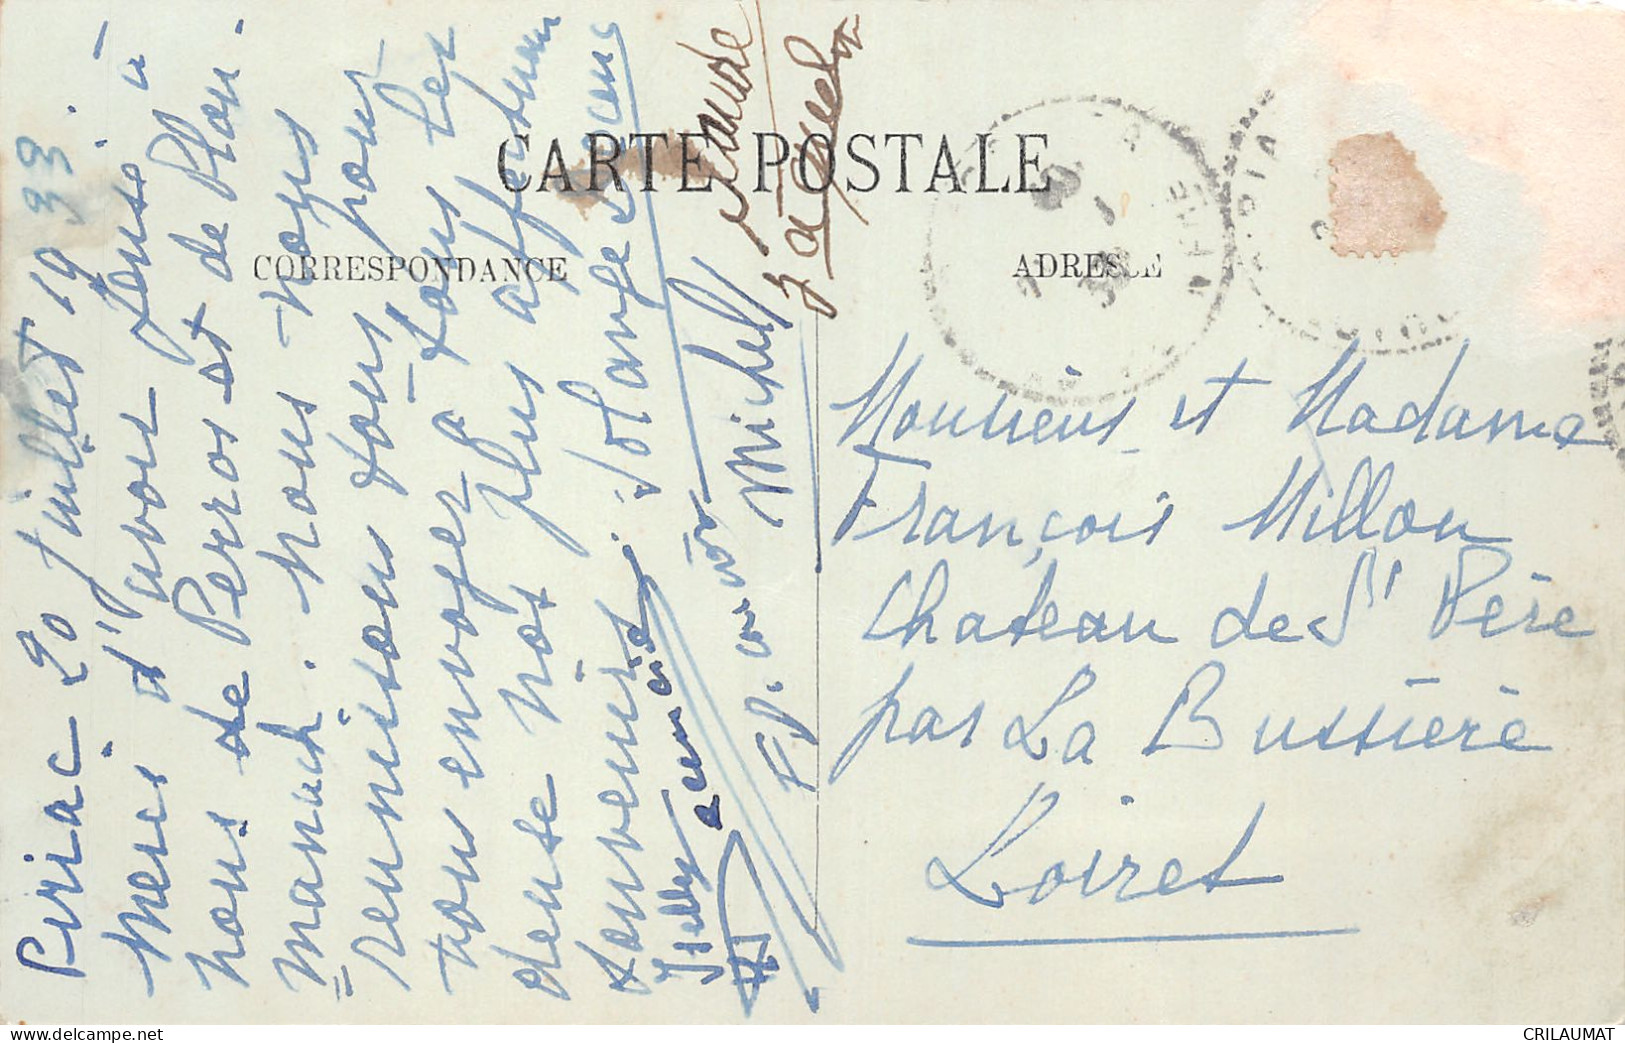 CARTE POSTALE
CORRESPONDANCE
ADRESSE
Piriac 20 juillet 19
33.
Merci d'avoir pensé à
nous de Perros et de Plou-
manach. Nous nous
réunissons tous pour
vous envoyer à tous les
deux nos plus affectueux
souvenirs. Solange
Michel
Monsieur et Madame
François Millon
Chateau de St Père
par La Bussière
Loiret
CRILAUMAT